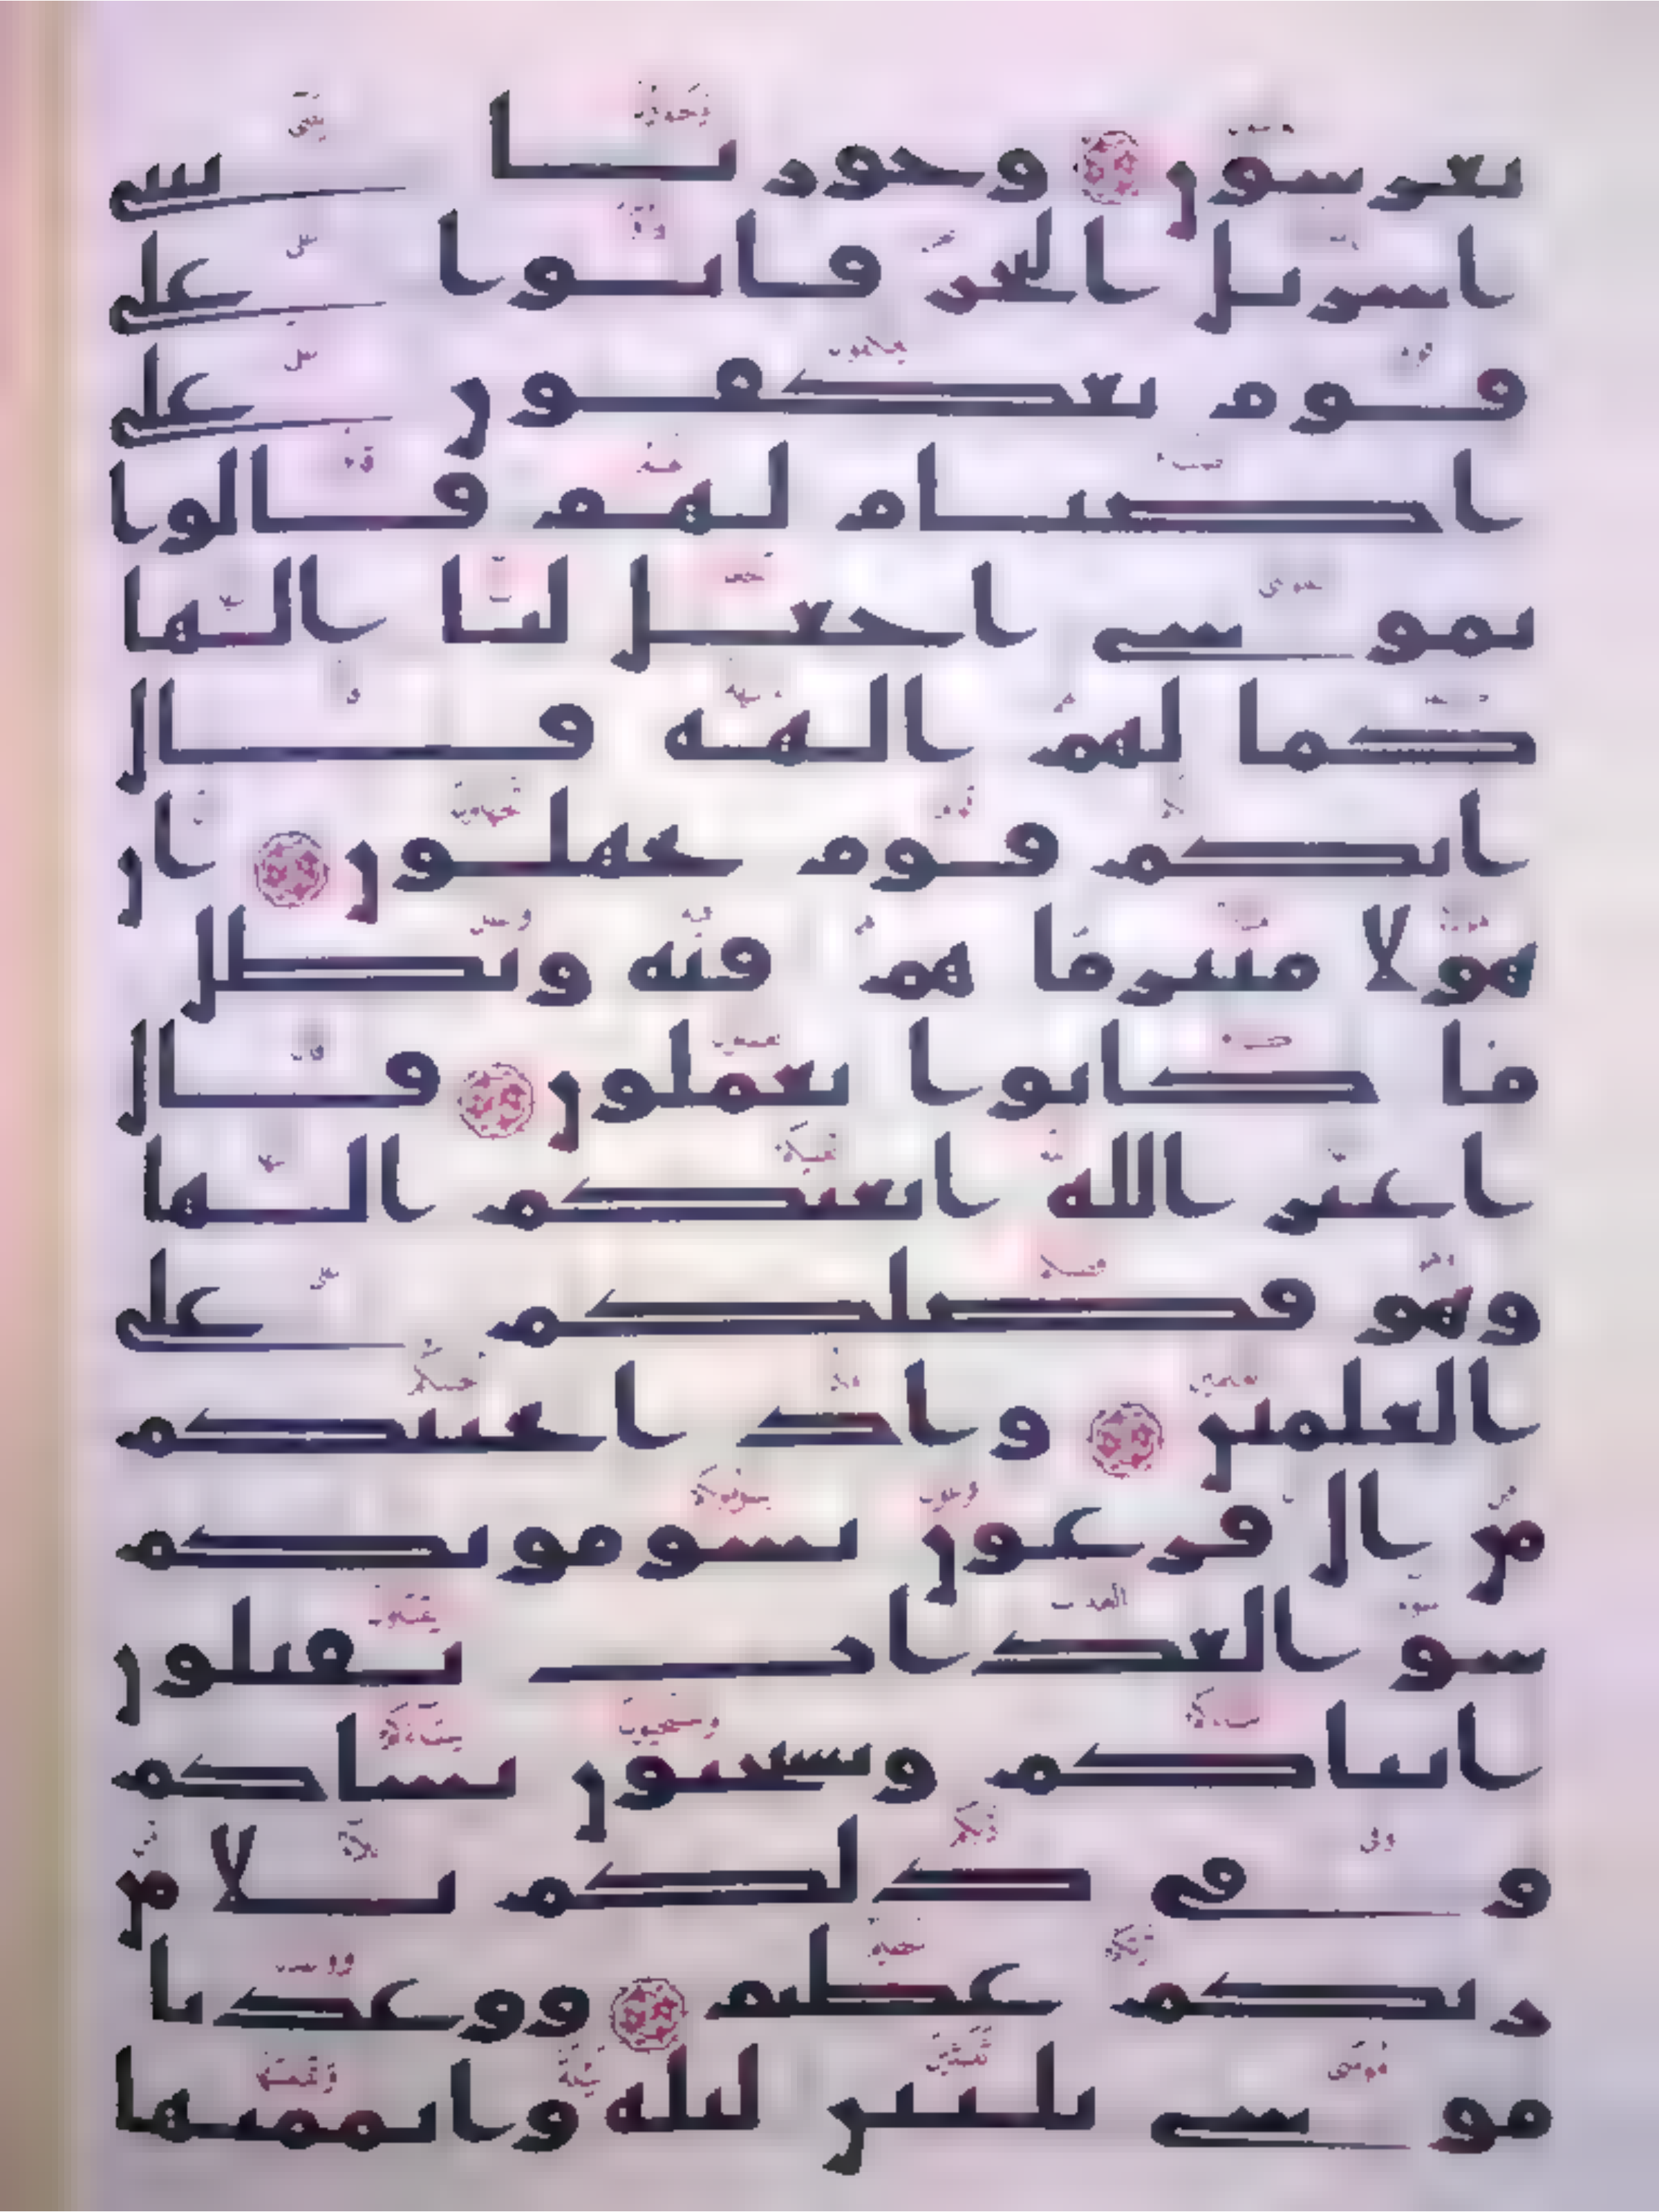 يعرشون وجوزنا ببنى
اسريل البحر فاتوا على
قوم يعكفون على
اصنام لهم قالوا
يموسى اجعل لنا الها
كما لهم الهة قال
انكم قوم تجهلون ان
هولا متبر ما هم فيه وبطل
ما كانوا يعملون قال
اغير الله ابغيكم الها
وهو فضلكم على
العلمين واذ انجينكم
من ال فرعون يسومونكم
سو العذاب يقتلون
ابناكم ويستحيون نساكم
وفى ذلكم بلا من
ربكم عظيم ووعدنا
موسى ثلثين ليلة واتممنها